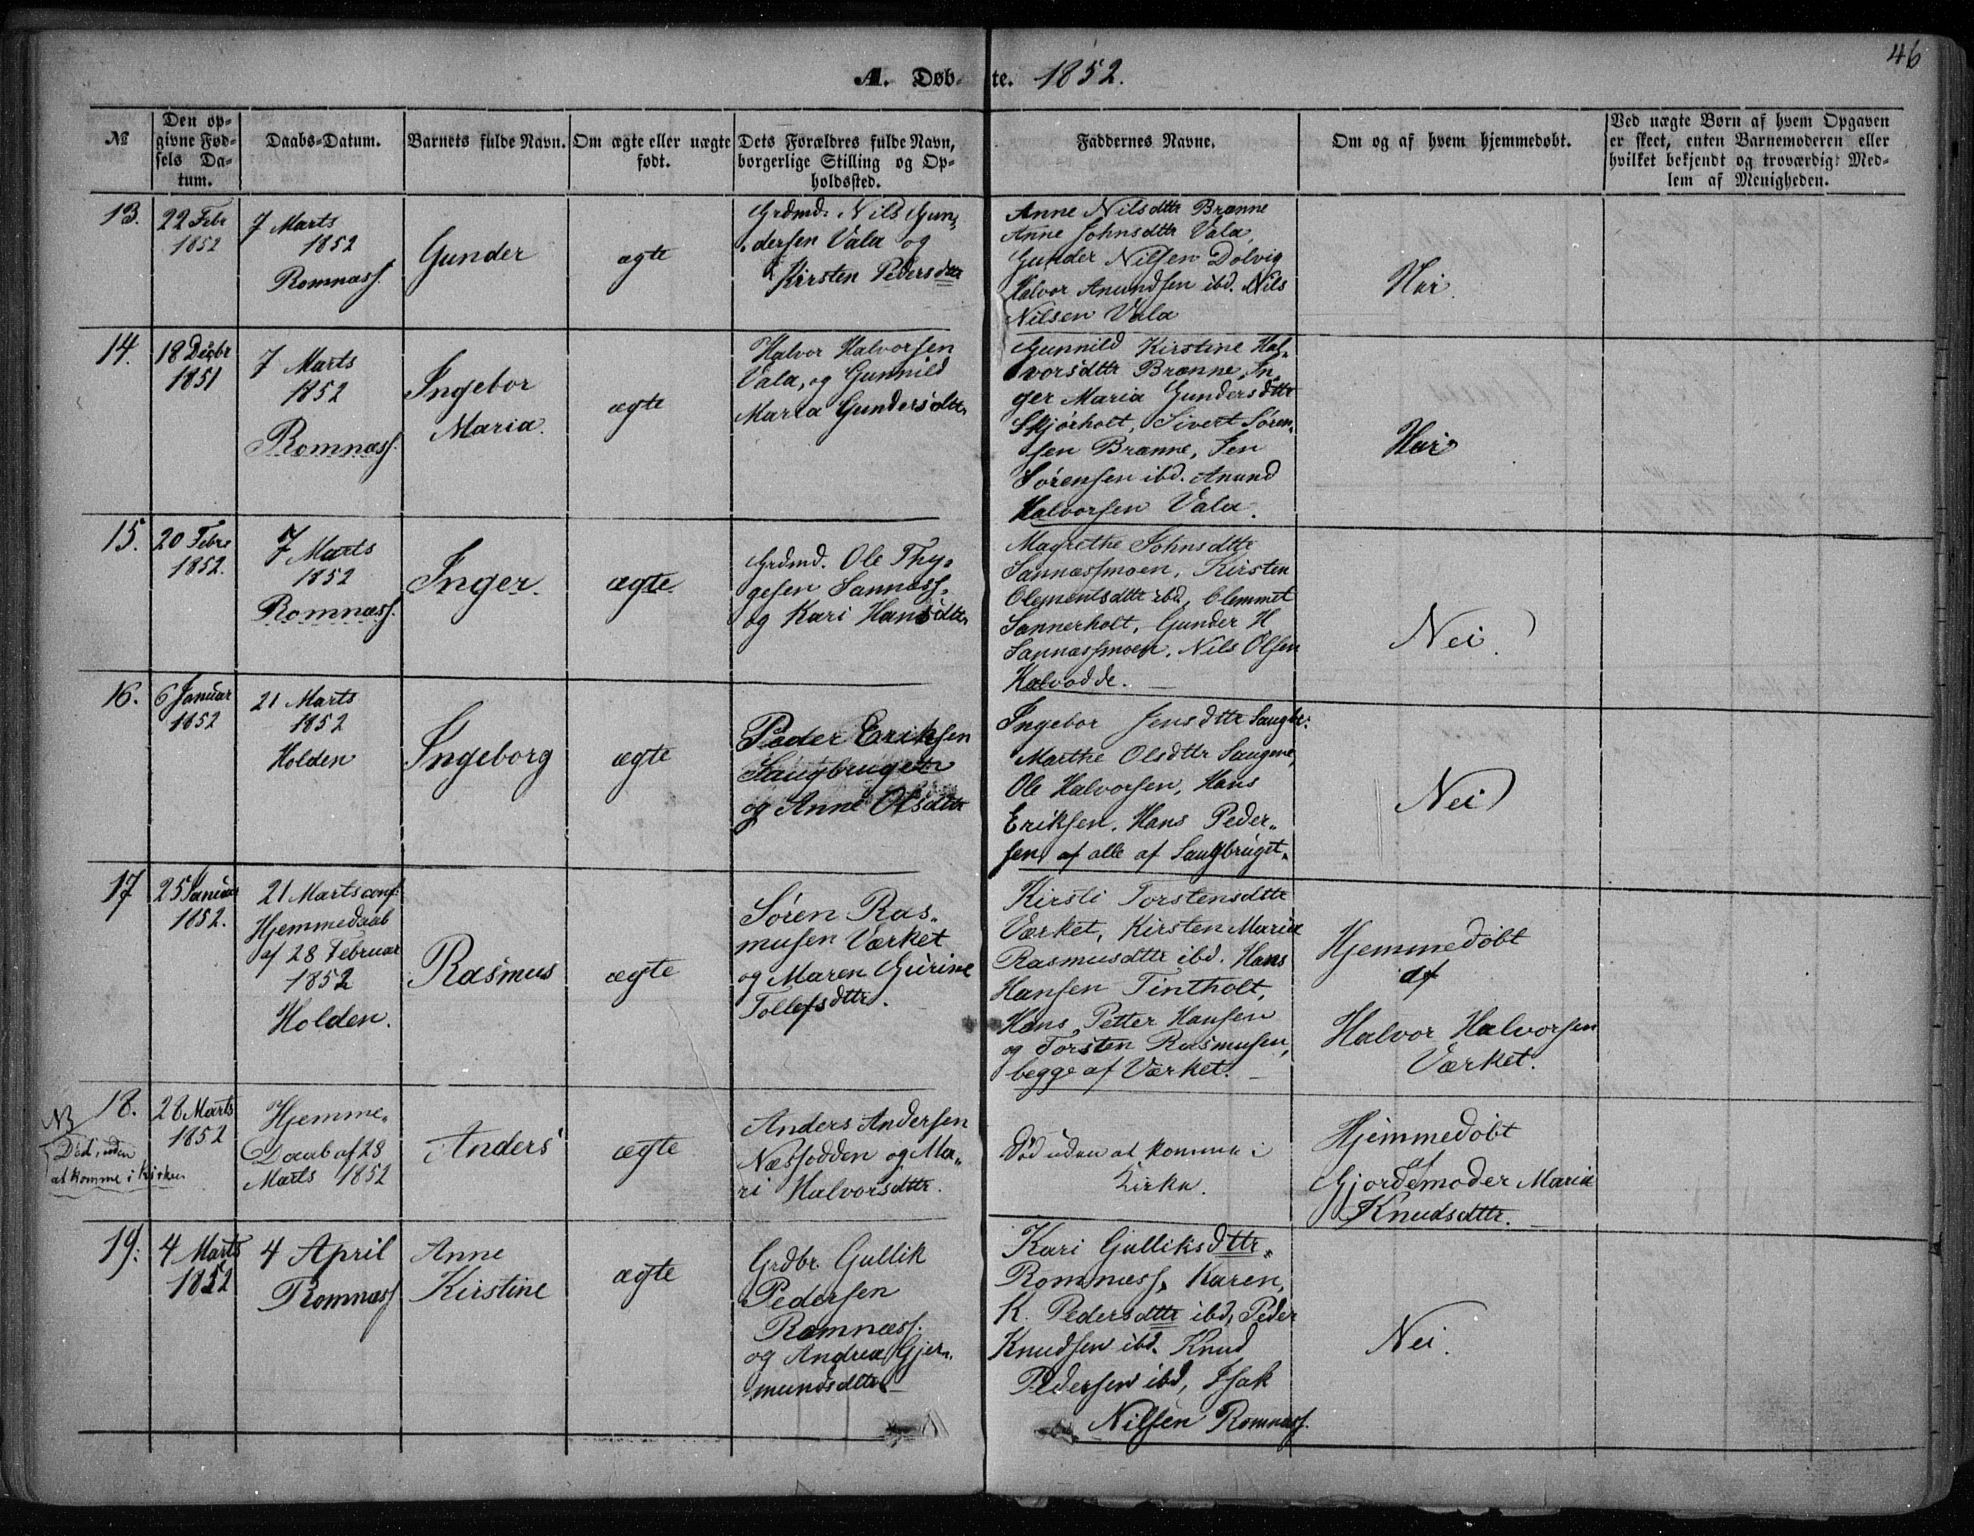 46
A. Døb- te. 1852.
№
Den op-
givne Fød-
sels Da-
tum.
Daabs-Datum.
Barnets fulde Navn.
Om ægte eller uægte
født.
Dets Forældres fulde Navn,
borgerlige Stilling og Op-
holdssted.
Faddernes Navne.
Om og af hvem hjemmedøbt.
Ved uægte Børn af hvem Opgaven
er skeet, enten Barnemoderen eller
hvilket bekjendt og troværdigt Med-
lem af Menigheden.
13.
22 Febr
1852
7 Marts
1852
Romnæss.
Gunder
ægte
Grdmd. Nils Gun-
dersen Vala og
Kirsten Pedersdttr
Anne Nilsdttr Brænne
Anne Johnsdttr Vala,
Gunder Nilsen Dolvig
Halvor Anundsen ibd. Nils
Nilsen Vala
Nei
14.
18 Decbr
1851
7 Marts
1852
Romnæss.
Ingebor
Maria.
ægte
Halvor Halvorsen
Vala, og Gunnild
Maria Gundersdttr
Gunnild Kirstine Hal-
vorsdttr Brænne, In-
ger Maria Gundersdttr
Skjørholt, Sivert Søren-
sen Brænne, Jen
Sørensen ibd. Anund
Halvorsen Vala.
Nei
15.
20 Febr
1852.
7 Marts
1852
Romnæss.
Inger.
ægte.
Grdmd. Ole Thy-
gesen Sannæss.
og Kari Hansdttr
Magrethe Johnsdttr
Sannæssmoen, Kirsten
Clementsdttr ibd, Clemmet
Sannerholt, Gunder H
Sannæssmoen, Nils Olsen
Kalvodde.
Nei.
16.
6 Januar
1852
21 Marts
1852
Holden
Ingeborg
ægte
Peder Eriksen
Saugbruget
og Anne Olsdttr
Ingebor Jensdttr Saugbr:
Marthe Olsdttr Saugene,
Ole Halvorsen, Hans
Eriksen, Hans Peder-
sen, af alle af Saugbruget.
Nei
17
25 Januar
1852.
21 Marts conf.
Hjemmedaab
af 28 Februar
1852
Holden.
Rasmus
ægte
Søren Ras-
musen Værket
og Maren Gurine
Tollefsdttr.
Kirsti Torstensdttr
Værket, Kirsten Maria
Rasmusdttr ibd. Hans
Hansen Tintholt,
Hans Petter Hansen
og Torsten Rasmusen,
begge af Værket.
Hjemmedøbt
af
Halvor Halvorsen
Værket.
18.
NB
Død, uden
at komme i Kirken
28 Marts
1852
Hjemme-
Daab af 28
Marts 1852
Anders
ægte
Anders Andersen
Næssodden og Ma-
ri Halvorsdttr.
Død uden at komme i
Kirke.
Hjemmedøbt
af
Gjordemoder Maria
Knudsdttr.
19.
4 Marts
1852
4 April
Romnæss
Anne
Kirstine
ægte
Grdbr. Gullik
Pedersen
Romnæss.
og Andrea Gjer-
mundsdttr
Kari Gulliksdttr
Romnæss, Karen,
K. Pedersdttr ibd, Peder
Knudsen ibd. Knud
Pedersen ibd, Isak
Nilsen Romnæss.
Nei.